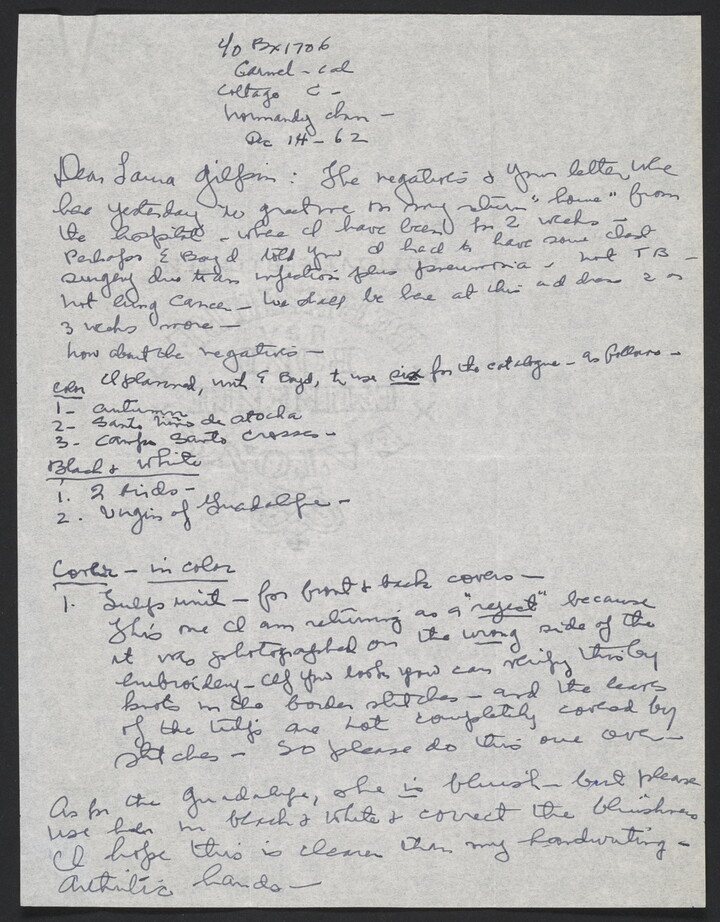 c/o Bx 1706
Carmel - Cal
Cottage C -
Normandy Inn -
Dec 14 - 62
Dear Laura Gilpin: The negatives & your letter were
here yesterday to greet me on my return "home" from
the hospital - where I have been for 2 weeks -
Perhaps E Boyd told you I had to have some chest
surgery due to an infection plus pneumonia - not TB -
not lung cancer - we shall be here at this address 2 or
3 weeks more -
Now about the negatives -
Color I planned, with E Boyd, to use six for the catalogue - as follows -
1 - Autumn
2 - Santo Niño de Atocha
3 - Campo Santo Crosses -
Black & White
1. 2 birds -
2. Virgin of Guadalupe -
Cover - in color
1. Tulip unit - for front & back covers -
This one I am returning as a "reject" because
it was photographed on the wrong side of the
embroidery - If you look you can verify this by
knots in the border stitches - and the leaves
of the tulips are not completely covered by
stitches - So please do this one over -
As for the Guadalupe, she is bluish - but please
use her in black & white & correct the bluishness
I hope this is clearer than my handwriting -
Arthritic hands -